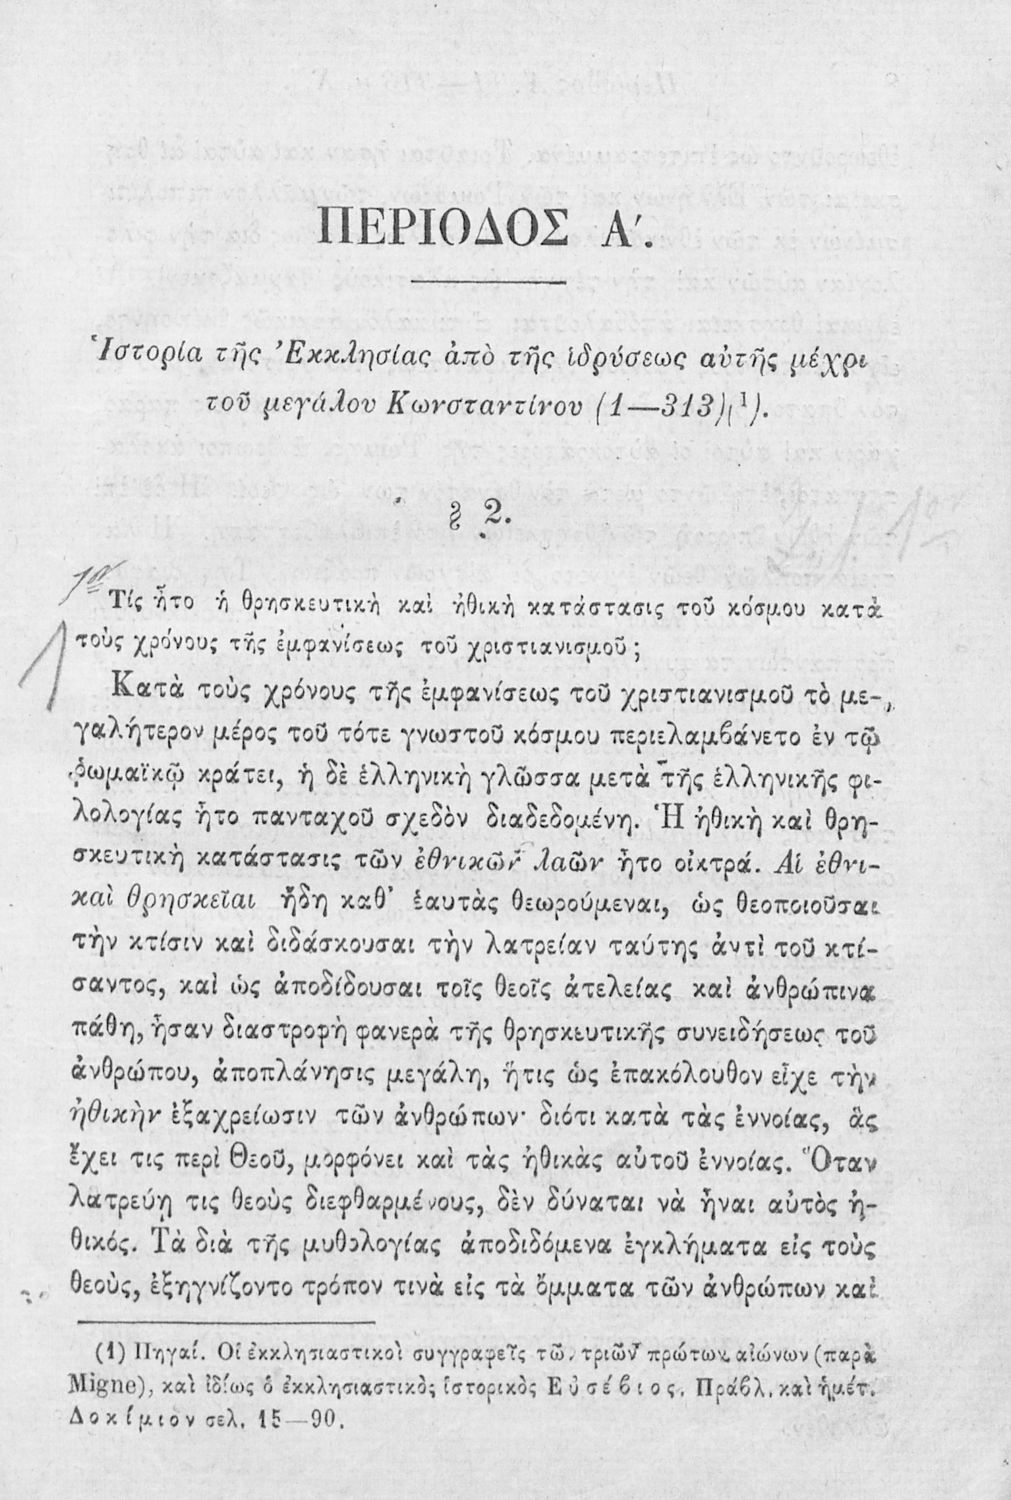 ΠΕΡΙΟΔΟΣ Α΄.
Ἱστορία τῆς Ἐκκλησίας ἀπὸ τῆς ἱδρύσεως αὐτῆς μέχρι
τοῦ μεγάλου Κωνσταντίνου (1—313)(¹).
§ 2.
Τίς ἦτο ἡ θρησκευτικὴ καὶ ἠθικὴ κατάστασις τοῦ κόσμου κατὰ
τοὺς χρόνους τῆς ἐμφανίσεως τοῦ χριστιανισμοῦ;
Κατὰ τοὺς χρόνους τῆς ἐμφανίσεως τοῦ χριστιανισμοῦ τὸ με-
γαλήτερον μέρος τοῦ τότε γνωστοῦ κόσμου περιελαμβάνετο ἐν τῷ
ῥωμαϊκῷ κράτει, ἡ δὲ ἑλληνικὴ γλῶσσα μετὰ τῆς ἑλληνικῆς φι-
λολογίας ἦτο πανταχοῦ σχεδὸν διαδεδομένη. Ἡ ἠθικὴ καὶ θρη-
σκευτικὴ κατάστασις τῶν ἐθνικῶν λαῶν ἦτο οἰκτρά. Αἱ ἐθνι-
καὶ θρησκεῖαι ἤδη καθ' ἑαυτὰς θεωρούμεναι, ὡς θεοποιοῦσαι
τὴν κτίσιν καὶ διδάσκουσαι τὴν λατρείαν ταύτης ἀντὶ τοῦ κτί-
σαντος, καὶ ὡς ἀποδίδουσαι τοῖς θεοῖς ἀτελείας καὶ ἀνθρώπινα
πάθη, ἦσαν διαστροφὴ φανερὰ τῆς θρησκευτικῆς συνειδήσεως τοῦ
ἀνθρώπου, ἀποπλάνησις μεγάλη, ἥτις ὡς ἐπακόλουθον εἶχε τὴν
ἠθικὴν ἐξαχρείωσιν τῶν ἀνθρώπων· διότι κατὰ τὰς ἐννοίας, ἃς
ἔχει τις περὶ Θεοῦ, μορφόνει καὶ τὰς ἠθικὰς αὐτοῦ ἐννοίας. Ὅταν
λατρεύῃ τις θεοὺς διεφθαρμένους, δὲν δύναται νὰ ἦναι αὐτὸς ἠ-
θικός. Τὰ διὰ τῆς μυθολογίας ἀποδιδόμενα ἐγκλήματα εἰς τοὺς
θεοὺς, ἐξηγνίζοντο τρόπον τινὰ εἰς τὰ ὄμματα τῶν ἀνθρώπων καὶ
(1) Πηγαί. Οἱ ἐκκλησιαστικοὶ συγγραφεῖς τῶν τριῶν πρώτων αἰώνων (παρὰ
Migne), καὶ ἰδίως ὁ ἐκκλησιαστικὸς ἱστορικὸς Εὐσέβιος. Πράβλ. καὶ ἡμέτ.
Δοκίμιον σελ. 15—90.